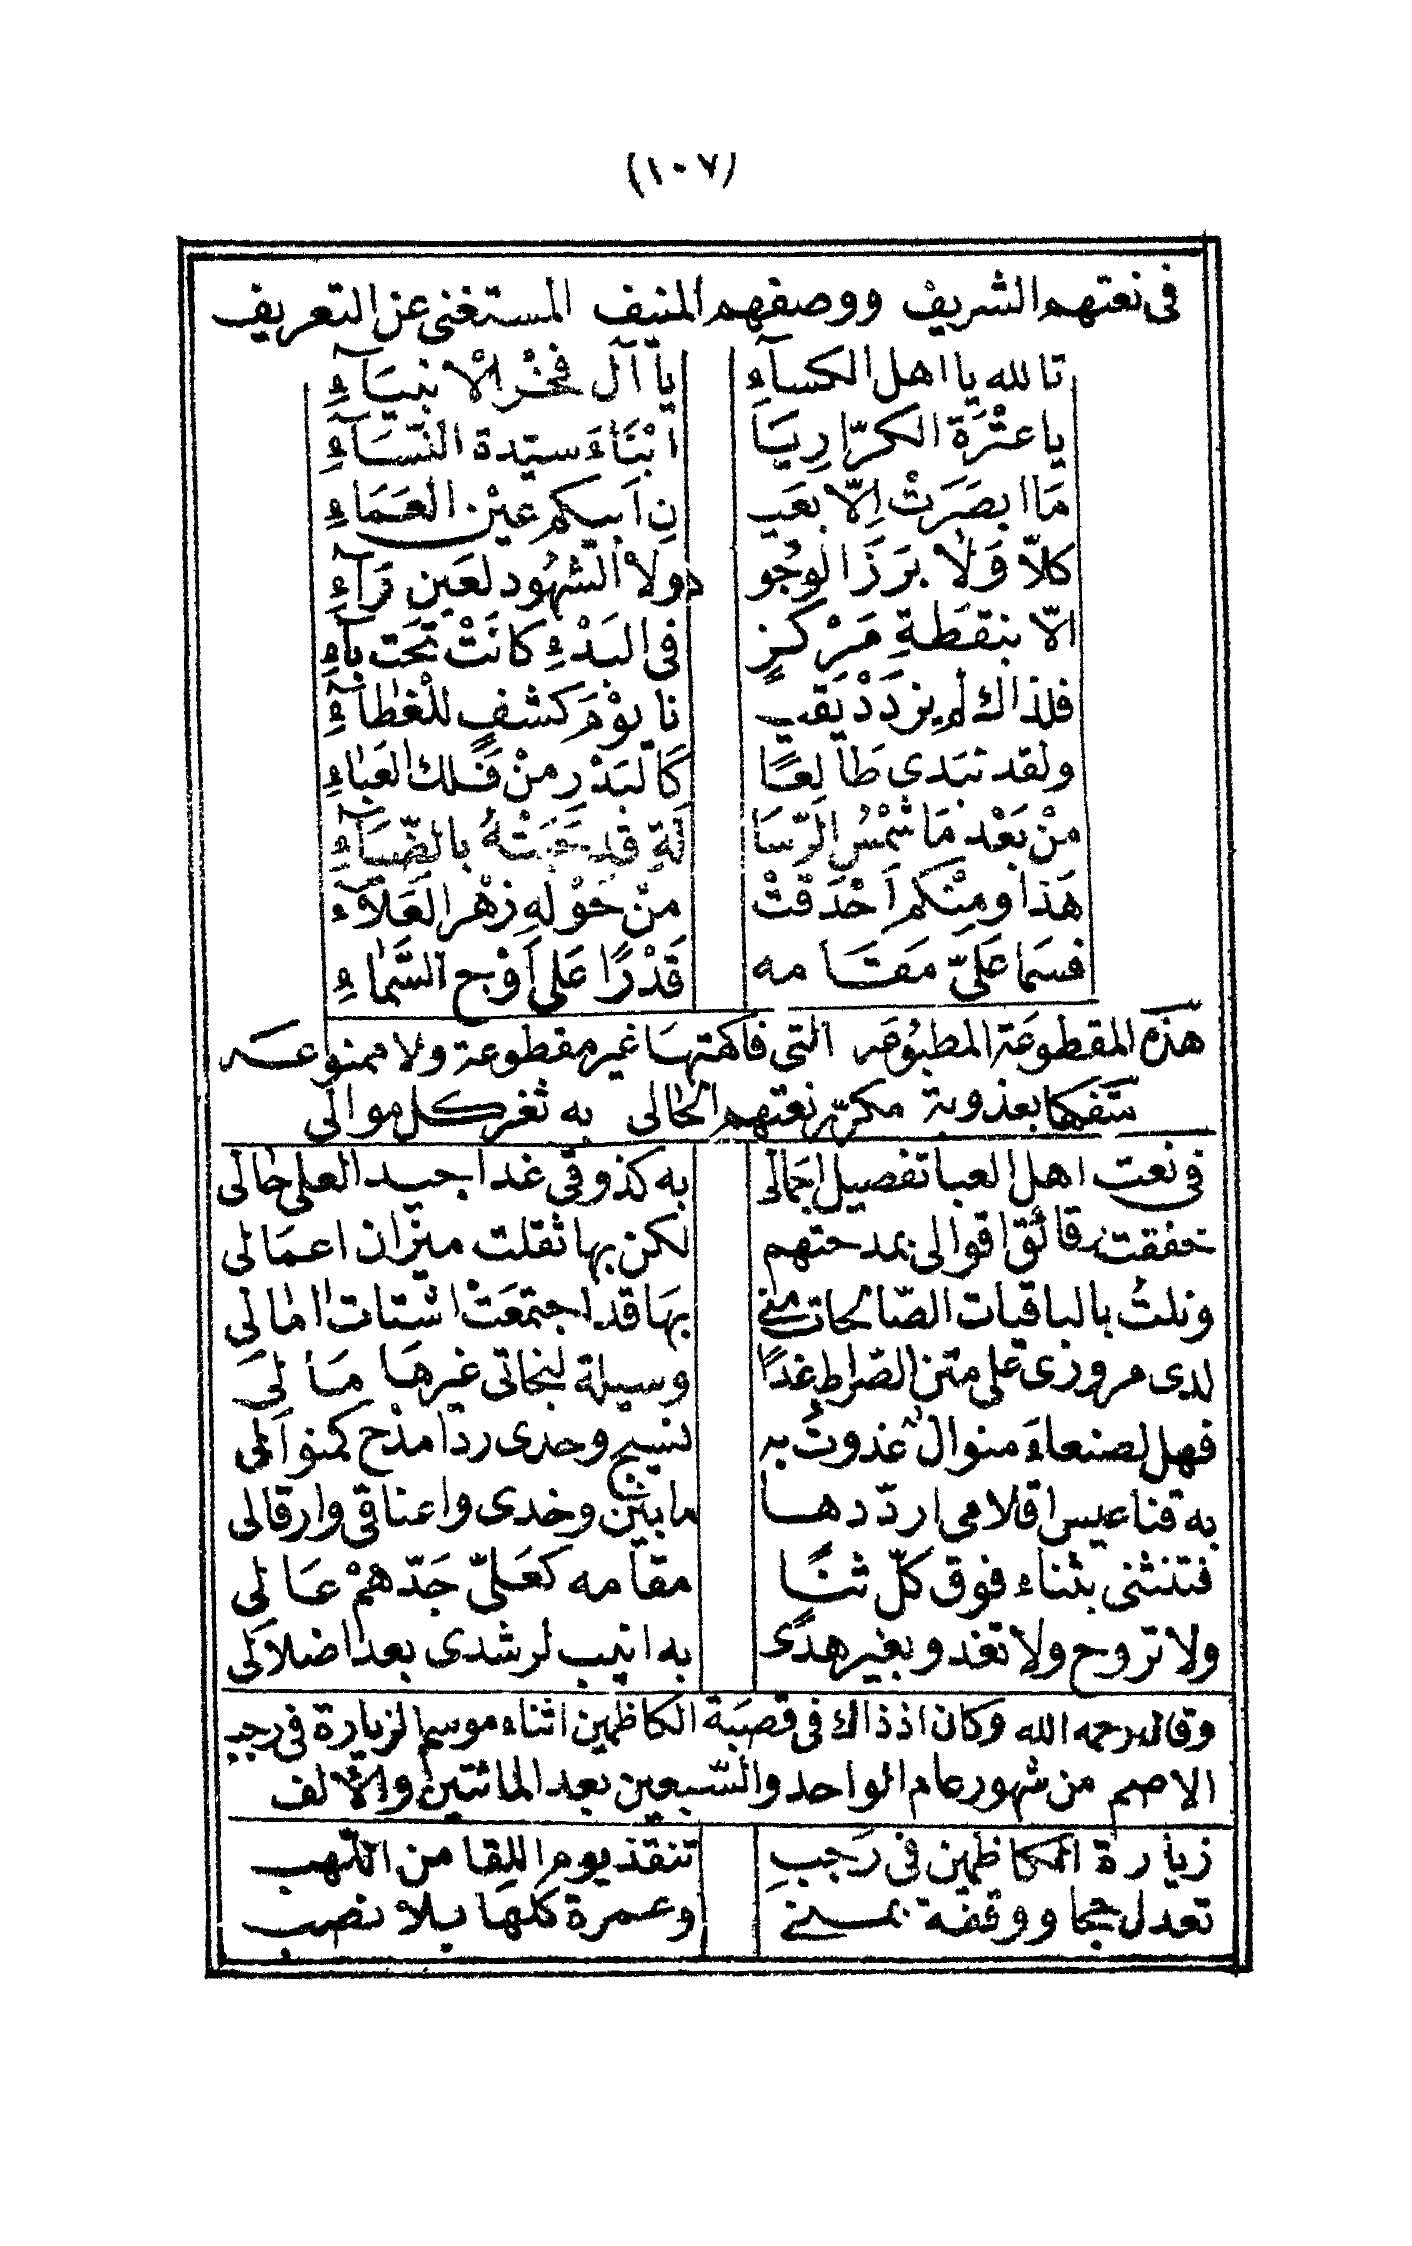 (١٠٧)
فى نعتهم الشريف ووصفهم المنيف المستغنى عن التعريف
تالله يا اهل الكسآءِ يآ آل فخْر الْانبيَآءِ
يا عتْرَة الكرّارِ يَا ابْنَاءَ سيّدة النّسَآءِ
مَا ابصَرَتْ اِلّا بعَيـ نِ اَبيكم عيْن العَمَاءِ
كلّا وَلَا برَزَ الوجُو دولا الشهُود لعَينِ رَآءِ
الّا بنقطَةِ مَرْكزٍ فى البَدْءِ كانَتْ تحَت بآءِ
فلذاك لم يزدَدْ يَقيـ نا يوْمَ كشفٍ للْغطآءِ
ولقد تبَدى طَالِعًا كَالبَدْرِ منْ فَلك العَبَاءِ
منْ بَعْد مَا شمْسُ الرّسَا لَةِ قد حبَتْهُ بالضّيَآءِ
هَذا ومنْكم اَحْدَقتْ منّ حَوْلهِ زهْر العَلآءِ
فسَما عَليّ مَقَامه قَدْرًا عَلى اَوْج السّمَاءِ
هذه المقطوعَة المطبُوعَه التى فاكهتهَا غير مقطوعة ولا ممنوعـه
ستفكها بعذوبة مكرّر نعتهم الحالى به ثغر كل موالى
فى نعت اهل العبا تفصيل اجمالى به كذوقى غدا جيد العلى حالى
خففقت رقائق اقوالى بمدحتهم لكن بها ثقلت ميزان اعمَالى
ونلتُ بالباقيات الصّالحات منى بهَا قد اجتمعَتْ اشتات امالى
لدى مرورى على متن الصّراط غدًا وسيلة لنجاتى غيرهَا مَا لى
فهل لصنعاءَ منوال غذوتُ به نسيج وحدى ردا مدْح كمنوالى
به قناعيس اقلامى ارددهـا ما بين وخدى واعناقى وارقالى
فتنثنى بثناء فوق كلّ ثنًا مقامه كعَلىّ جَدّهمْ عَالى
ولا تروح ولا تغدو بغير هدًى به انيب لرشدى بعد اضلالى
وقال رحمه الله وكان اذذاك فى قصبَة الكاظمين اثناء موسم الزيارة فى رجب
الاصم من شهور عام الواحد والسّبعين بعد المائتين والالف
زيارة الكاظمين فى رَجبِ تنقذ يوم اللقا من اللّهب
تعدل حجا ووقفة بمنى وعمرة كلها بلا نصب